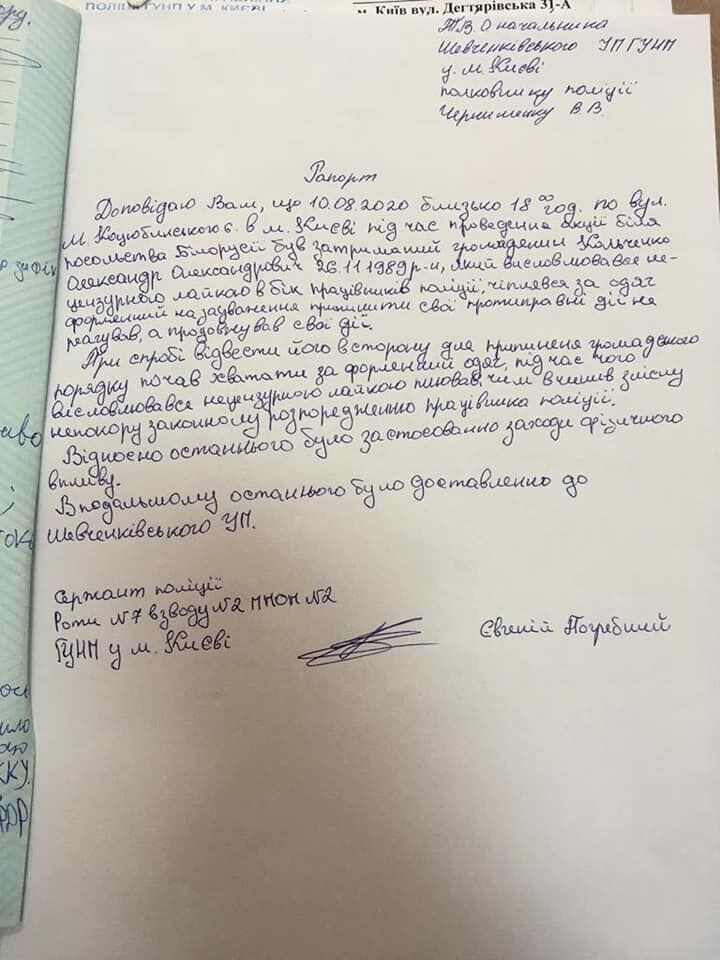 ПОЛІЦІЇ ГУНП У М. КИЄВІ
м. Київ вул. Дегтярівська 31-А
Т.В.О начальника
Шевченківського УП ГУНП
у м. Києві
полковнику поліції
Черниненку В.В.
Рапорт
Доповідаю Вам, що 10.08.2020 близько 18 00 год. по вул.
М. Коцюбинського 6. в м. Києві під час проведення акції біля
посольства Білорусії був затриманий громадянин Кольченко
Олександр Олександрович 26.11.1989р-н, який висловлювався не-
цензурного лайкою в бік працівників поліції, чіплявся за одяг
форменний на зауваження припинити свої протиправні дії не
реагував, а продовжував свої дії.
При спробі відвести його в сторону для припиненя громадського
порядку почав хватати за форменний одяг, під час чого
висловлювався нецензурною лайкою плював, чим вчинив злісну
непокору законному розпордженню працівника поліції.
Відносно останнього було застосованно заходи фізичного
впливу.
В подальшому останнього було доставленно до
Шевченківського УП.
Сержант поліції
Роти №7 взводу №2 ППОП №2
ГУНП у м. Києві
Євгеній Погребний